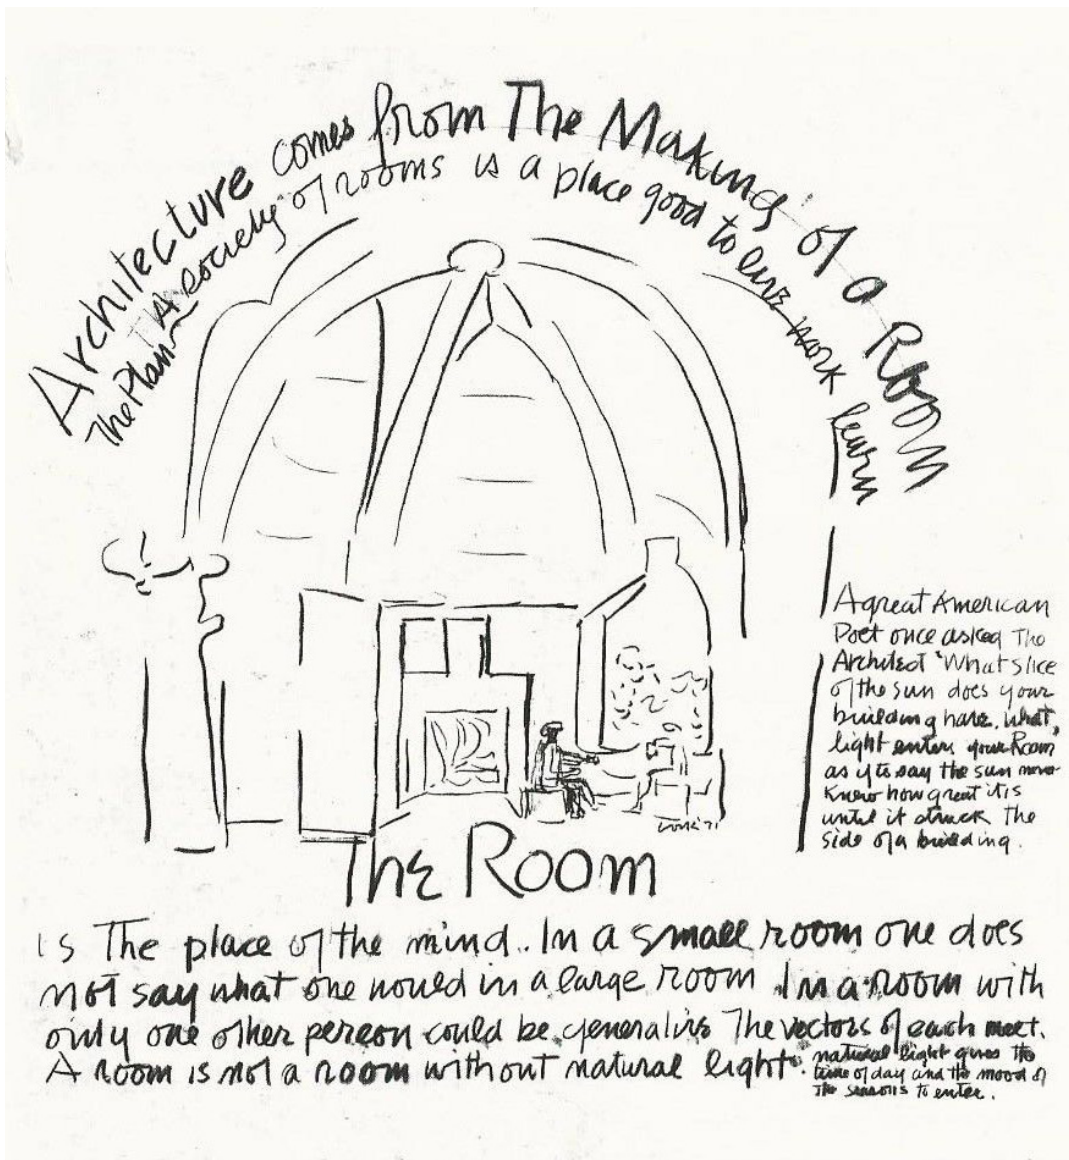 Architecture comes from The Making of a Room
The Plan A society of rooms is a place good to live work learn
A great American
Poet once asked The
Architect 'What slice
of the sun does your
building have. What
light enters your Room
as if to say the sun never
knew how great it is
until it struck the
side of a building.
The Room
is The place of the mind. In a small room one does
not say what one would in a large room In a room with
only one other person could be generative The vectors of each meet.
A room is not a room without natural light. natural light gives the
time of day and the mood of
The seasons to enter.